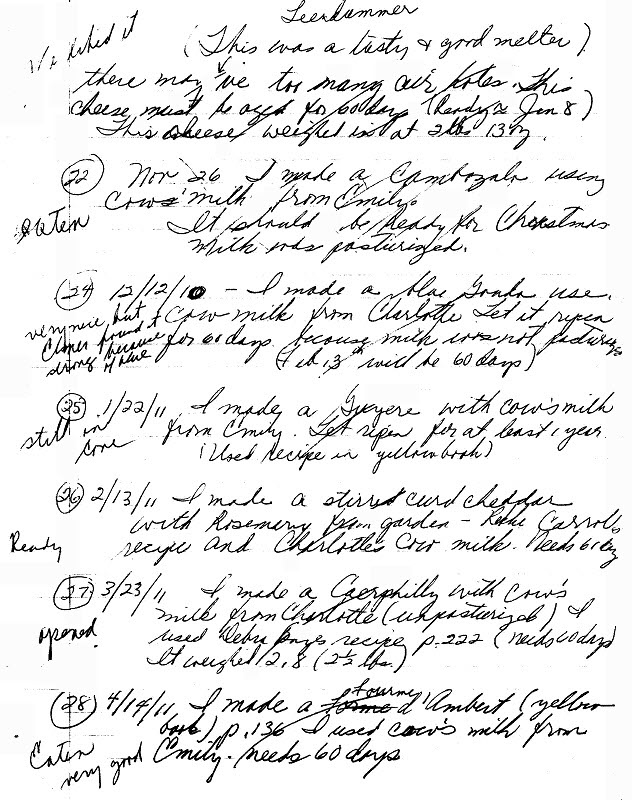 Leerdammer
We liked it
(This was a tasty & good melter)
there may 've too many air holes. This
cheese must be aged for 60 days (Ready Jan 8)
This cheese weighed in at 2 lbs 13 oz.
22 Nov 26 I made a Cambozola using
Cows' milk from Emily.
Eaten
It should be ready for Christmas
Milk was pasturized.
24 12/12/10 - I made a blue Gouda use.
very nice but
Cow milk from Charlotte Let it ripen
Elmer found it
strong because
of blue
for 60 days. because milk was not pasturize
(Feb 13th will be 60 days)
25 1/22/11 I made a Guyere with cow's milk
still in
cave
from Emily. Let ripen for at least 1 year.
(Used recipe in yellow book)
26 2/13/11 I made a stirred curd cheddar
with Rosemary from garden - Carroll's
Ready
recipe and Charlotte's Cow milk. Needs 60 day
27 3/23/11 I made a Caerphilly with cow's
milk from Charlotte (unpasturized) I
opened
used recipe p. 222 (needs 60 days)
It weighed 2.8 (2 1/2 lbs.)
28 4/14/11, I made a Fourme d'Ambert (yellow
book), p. 136 I used cow's milk from
Eaten
very good
Emily. needs 60 days